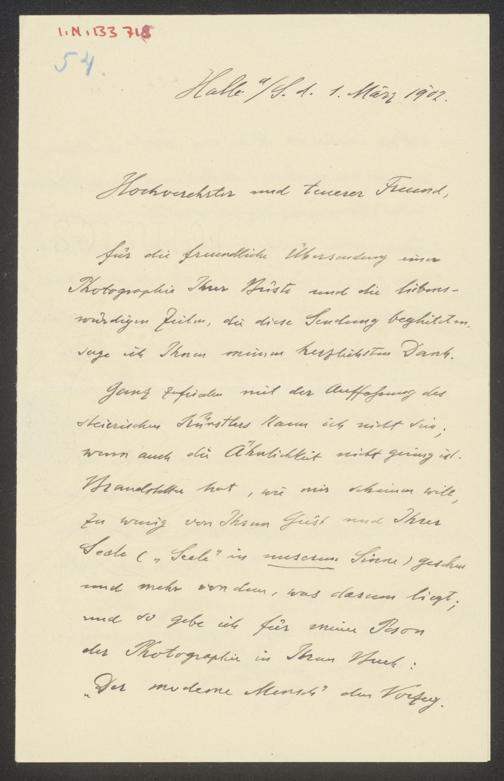 I.N. 133 718
54.
Halle a/S. d. 1. März 1902.
Hochverehrter und teuerer Freund,
für die freundliche Übersendung einer
Photographie Ihrer Büste und die liebens-
würdigen Zeilen, die diese Sendung begleiteten,
sage ich Ihnen meinen herzlichsten Dank.
Ganz zufrieden mit der Auffassung des
steierischen Künstlers kann ich nicht sein;
wenn auch die Ähnlichkeit nicht gering ist.
Brandstetter hat, wie mir scheinen will,
zu wenig von Ihrem Geist und Ihrer
Seele („Seele" in unserem Sinne) gesehen
und mehr von dem, was darum liegt;
und so gebe ich für meine Person
der Photographie in Ihrem Buch:
„Der moderne Mensch" den Vorzug.